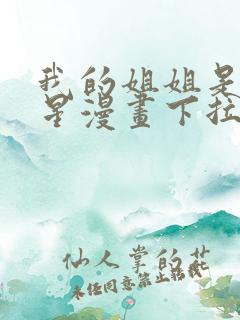 我的姐姐是
星漫畫下拉
仙人掌的花
未经同意禁止转载